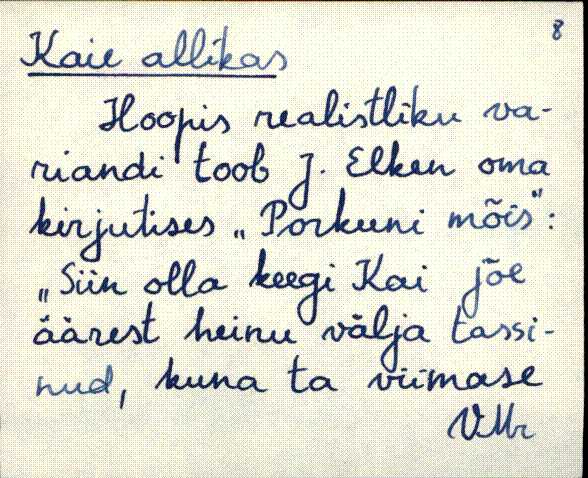 8
Kaie allikas
Hoopis realistliku va-
riandi toob J. Elken oma
kirjutises „Porkuni mõis":
„Siin olla keegi Kai jõe
äärest heinu välja tassi-
nud, kuna ta viimase
VMr